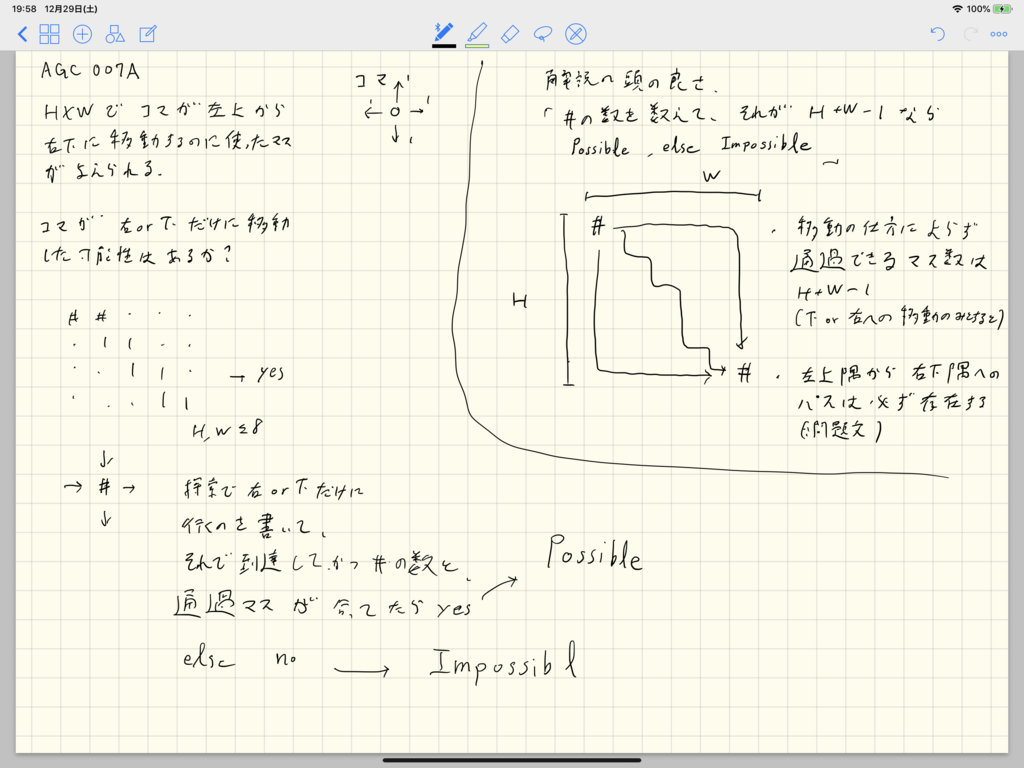 19:58 12月29日(土)
100%
AGC 007A
H×Wで コマが左上から
右下に移動するのに使ったマス
が与えられる.
コマ
1
1
1
1
コマが 右or下だけに移動
した可能性はあるか?
# # . . .
. 1 1 . .
. . 1 1 .
. . . 1 1
→ yes
H,W ≤ 8
#
探索で右or下だけに
行くのを書いて,
それで到達して.かつ #の数と,
通過マスが合ってたら yes
else no → Impossibl
Possible
解説の頭の良さ.
「#の数を数えて、それが H+W-1 なら
Possible , else Impossible
W
H
#
#
・移動の仕方によらず
通過できるマス数は
H+W-1
(下or右への移動のみだと)
・左上隅から右下隅への
パスは必ず存在する
(問題文)